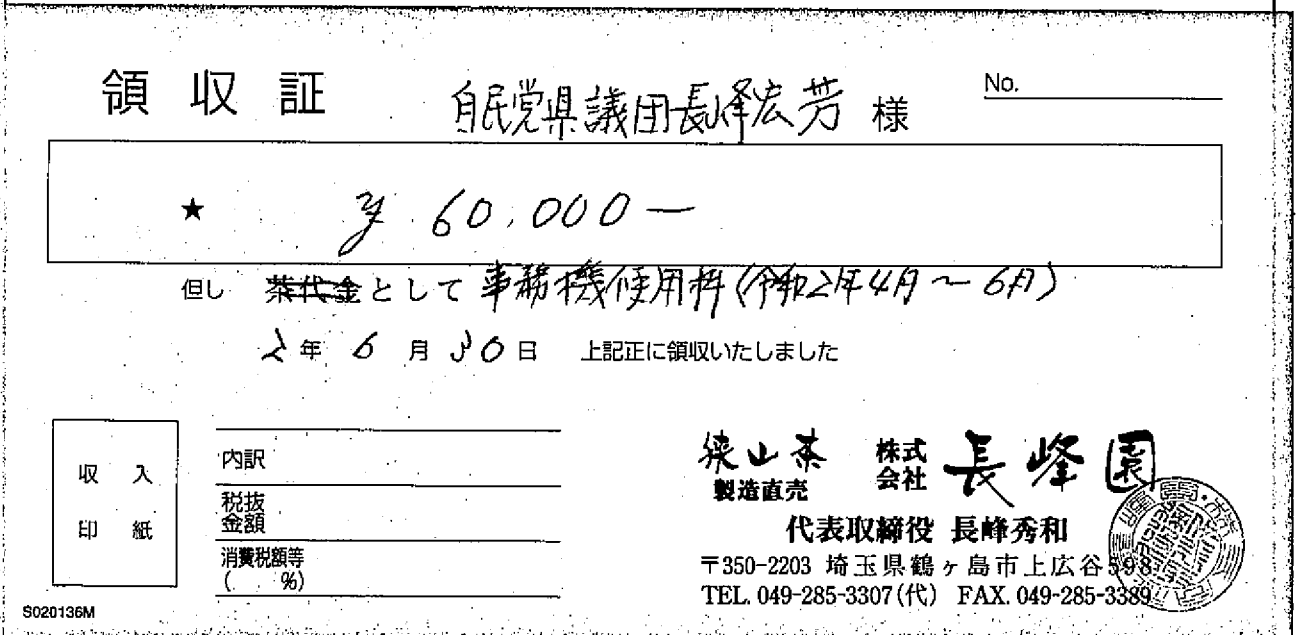 領収証 自民党県議団長峰宏芳 様 No.
★ ¥60,000-
但し 茶代金として 事務機使用料(令和2年4月～6月)
2年 6月 30日 上記正に領収いたしました
収入
印紙
内訳
税抜
金額
消費税額等
( %)
狭山茶 製造直売 株式会社 長峰園
代表取締役 長峰秀和
〒350-2203 埼玉県鶴ヶ島市上広谷598
TEL. 049-285-3307(代) FAX. 049-285-3389
S020136M